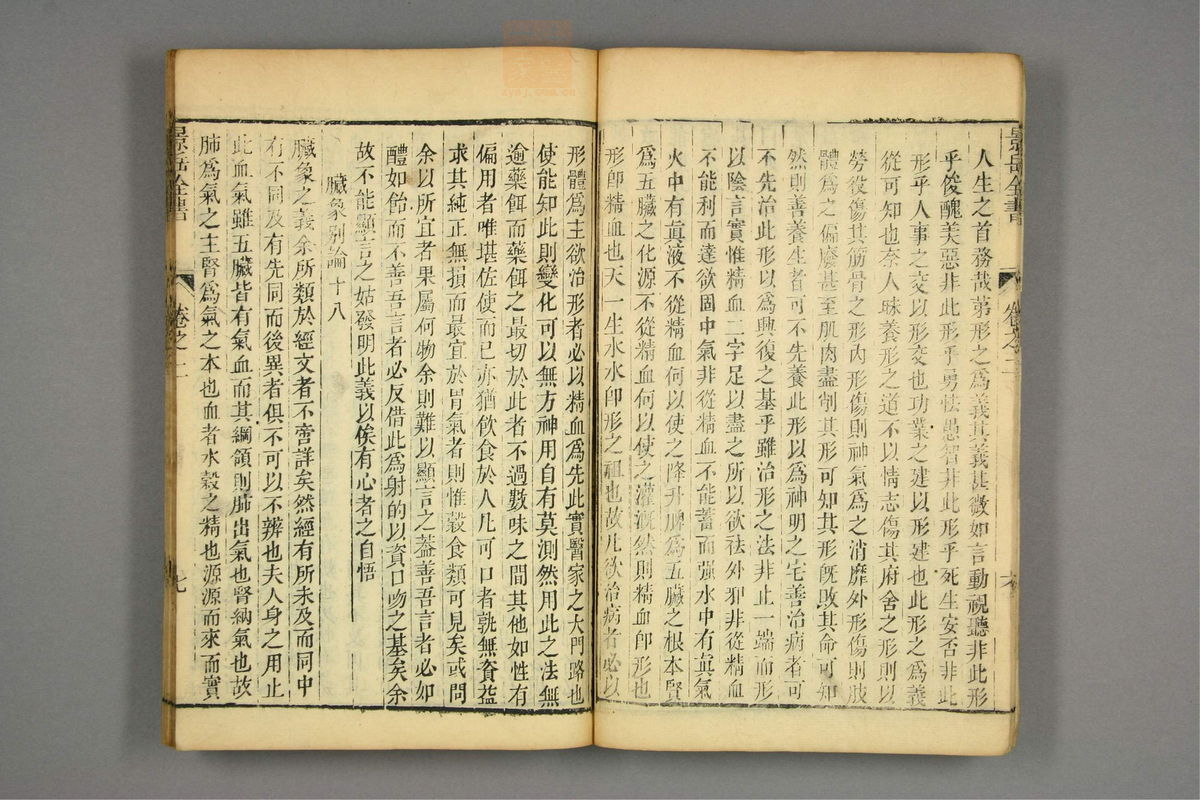 景岳全書
卷之二
六
人生之首務哉第形之爲義其義甚微如言動視聽非此形
乎俊醜美惡非此形乎勇怯愚智非此形乎死生安否非此
形乎人事之交以形交也功業之建以形建也此形之爲義
從可知也奈人昧養形之道不以情志傷其府舍之形則以
勞役傷其筋骨之形內形傷則神氣爲之消靡外形傷則肢
體爲之偏廢甚至肌肉盡削其形可知其形旣敗其命可知
然則善養生者可不先養此形以爲神明之宅善治病者可
不先治此形以爲興復之基乎雖治形之法非止一端而形
以陰言實惟精血二字足以盡之所以欲祛外邪非從精血
不能利而達欲固中氣非從精血不能蓄而强水中有眞氣
火中有眞液不從精血何以使之降升脾爲五臟之根本腎
爲五臟之化源不從精血何以使之灌漑然則精血卽形也
形卽精血也天一生水水卽形之祖也故凡欲治病者必以
形體爲主欲治形者必以精血爲先此實醫家之大門路也
使能知此則變化可以無方神用自有莫測然用此之法無
逾藥餌而藥餌之最切於此者不過數味之間其他如性有
偏用者唯堪佐使而已亦猶飲食於人凡可口者孰無資益
求其純正無損而最宜於胃氣者則惟穀食類可見矣或問
余以所宜者果屬何物余則難以顯言之葢善吾言者必如
醴如飴而不善吾言者必反借此爲射的以資口吻之基矣余
故不能顯言之姑發明此義以俟有心者之自悟
臟象別論十八
臟象之義余所類於經文者不啻詳矣然經有所未及而同中
有不同及有先同而後異者俱不可以不辨也夫人身之用止
此血氣雖五臟皆有氣血而其綱領則肺出氣也腎納氣也故
肺爲氣之主腎爲氣之本也血者水穀之精也源源而來而實
景岳全書
卷之二
七